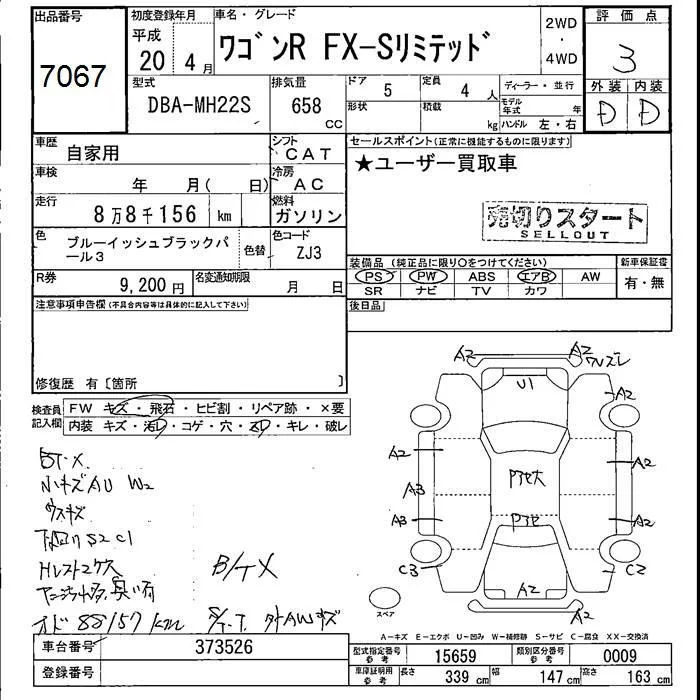 出品番号
7067
初度登録年月
平成
20 4月
車名・グレード
ワゴンR FX-Sリミテッド
2WD
・
4WD
評価点
3
外装 内装
D D
型式
DBA-MH22S
排気量
658
CC
ドア
5
定員
4 人
形状
積載
kg
ディーラー・並行
モデル年式 年
ハンドル 左・右
車歴
自家用
シフト
CAT
車検
年 月( 日)
冷房
AC
走行
8万8千156 km
燃料
ガソリン
色
ブルーイッシュブラックパール3
色替
色コード
ZJ3
R券
9,200 円
名変通知期限
月 日
セールスポイント(正常に機能するものに限ります)
★ユーザー買取車
売切りスタート
SELLOUT
装備品(純正品に限り○をつけてください)
PS PW ABS エアB AW
SR ナビ TV カワ
新車保証書
有・無
後日品
注意事項申告欄(不具合内容等は具体的に記入して下さい)
修復歴 有〔箇所 〕
検査員記入欄
FW キズ・飛石・ヒビ割・リペア跡・×要
内装 キズ・汚レ・コゲ・穴・スレ・キレ・破レ
BT-X
小キズAU W2
ウスキズ
下回りS2C1
B/T X
オド 88157km
A2
A2
U1
A2
A2
A2
A3
A3
A2
C3
C2
A2
A2
スペア
A-キズ E-エクボ U-凹み W-補修跡 S-サビ C-腐食 XX-交換済
車台番号
373526
登録番号
型式指定番号
参考
15659
類別区分番号
参考
0009
車庫証明用
参考
長さ
339 cm
幅
147 cm
高さ
163 cm